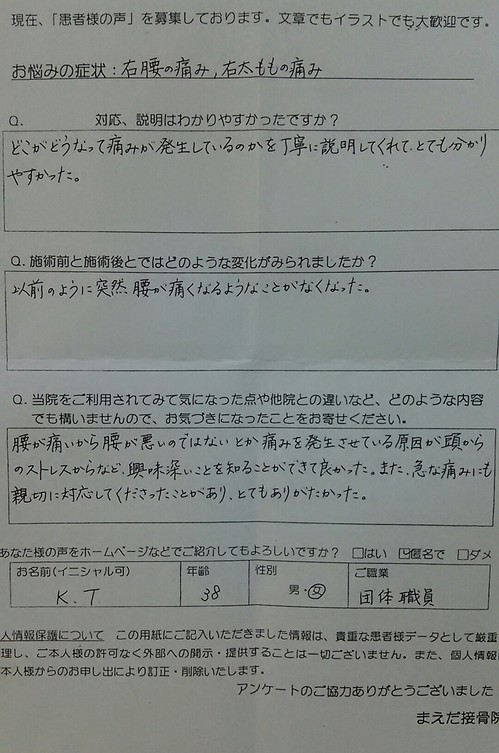 現在、「患者様の声」を募集しております。文章でもイラストでも大歓迎です。
お悩みの症状:右腰の痛み,右太ももの痛み
Q. 対応、説明はわかりやすかったですか?
どこがどうなって痛みが発生しているのかを丁寧に説明してくれて、とても分かり
やすかった。
Q. 施術前と施術後とではどのような変化がみられましたか?
以前のように突然腰が痛くなるようなことがなくなった。
Q. 当院をご利用されてみて気になった点や他院との違いなど、どのような内容
でも構いませんので、お気づきになったことをお寄せください。
腰が痛いから腰が悪いのではないとか痛みを発生させている原因が頭から
のストレスからなど、興味深いことを知ることができて良かった。また、急な痛みにも
親切に対応してくださったことがあり、とてもありがたかった。
あなた様の声をホームページなどでご紹介してもよろしいですか? □はい ☑匿名で □ダメ
お名前(イニシャル可) 年齢 性別 ご職業
K.T 38 男・女 団体職員
人情報保護について この用紙にご記入いただきました情報は、貴重な患者様データとして厳重
理し、ご本人様の許可なく外部への開示・提供することは一切ございません。また、個人情報
本人様からのお申し出により訂正・削除いたします。
アンケートのご協力ありがとうございました
まえだ接骨院